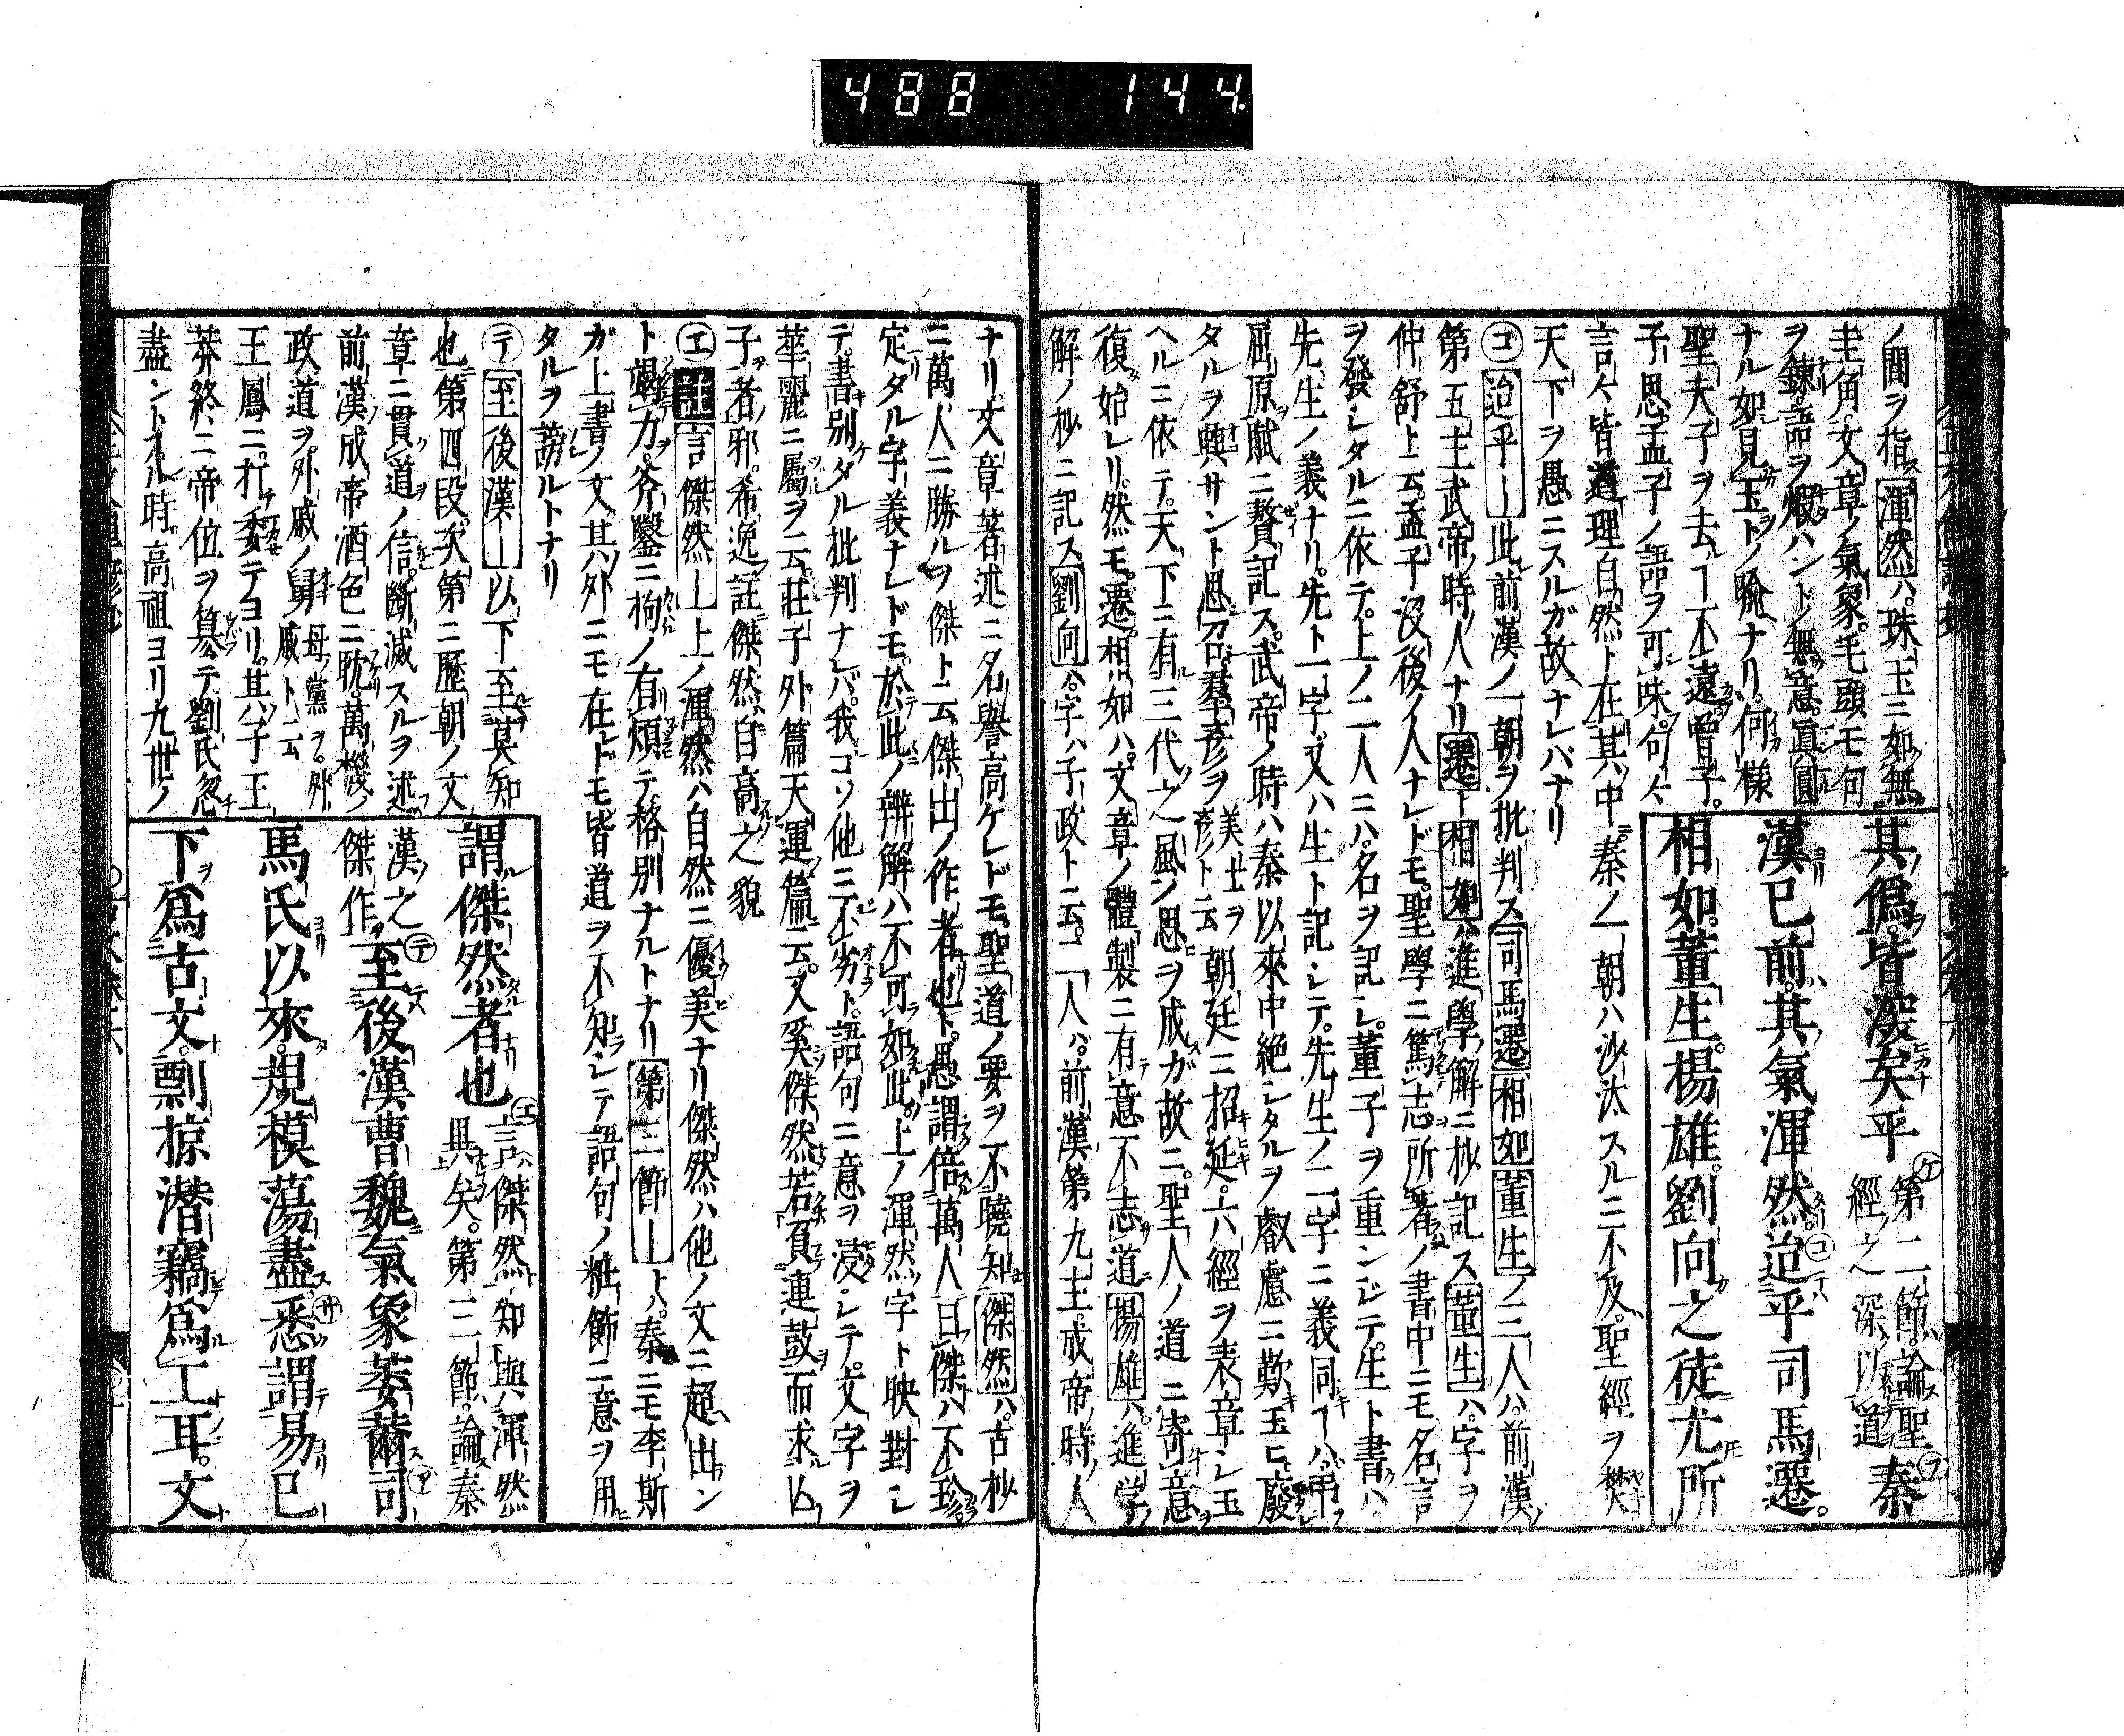 488 144.
ノ間ヲ指ス渾然ハ珠玉ニ如無
圭角文章ノ氣象毛頭モ句
ヲ錬語ヲ煅ハントノ無意眞圓
ナル如見玉トノ喩ナリ何樣
聖夫子ヲ去ルヿ不遠曾子
子思孟子ノ語ヲ可味句々
言々皆道理自然ト在其中秦ノ一朝ハ沙汰スルニ不及聖經ヲ焚
天下ヲ愚ニスルガ故ナレバナリ
其僞皆深矣乎
第二節論聖
經之深以道
秦
漢已前其氣渾然迨乎司馬遷
相如董生楊雄劉向之徒尤所
コ迨乎―此前漢ノ一朝ヲ批判ス司馬遷相如董生ノ三人ハ前漢
第五主武帝ノ時ノ人ナリ遷ト相如ハ進學解ニ抄記ス董生ハ字ヲ
仲舒ト云孟子沒後ノ人ナレドモ聖學ニ篤志所著ノ書中ニモ名言
ヲ發シタルニ依テ上ノ二人ニハ名ヲ記シ董子ヲ重ンジテ生ト書ハ
先生ノ義ナリ先ト一字又ハ生ト記シテ先生ノ二字ニ義同ヿハ弔
屈原賦ニ贅記ス武帝ノ時ハ秦以來中絶シタルヲ叡慮ニ歎玉ヒ廢
タルヲ興サント思召羣彦ヲ美士ヲ彦ト云朝廷ニ招延六經ヲ表章シ玉
ヘルニ依テ天下ニ有三代之風ン思ヲ成ガ故ニ聖人ノ道ニ寄意
復始レリ然モ遷相如ハ文章ノ體製ニ有意不志道楊雄ハ進学
解ノ抄ニ記ス劉向ハ字ハ子政ト云二人ハ前漢第九主成帝ノ時ノ人
ナリ文章著述ニ名譽高ケレドモ聖道ノ要ヲ不曉知傑然ハ古抄
ニ萬人ニ勝ルヲ傑ト云傑出ノ作者也ト愚謂倍萬人曰傑ハ不珍
定タル字義ナレドモ於此ノ辨解ハ不可如此上ノ渾然ノ字ト映對シ
テ書別タル批判ナレバ我コソ他ニ不劣ト語句ニ意ヲ浸シテ文字ヲ
華麗ニ屬ヲ云莊子外篇天運篇云又奚傑然若負建鼓而求亡
子者邪希逸註傑然自高之貌
エ註言傑然―上ノ渾然ハ自然ニ優美ナリ傑然ハ他ノ文ニ超出ン
ト力斧鑿ニ拘ノ有煩テ格別ナルトナリ第三節―トハ秦ニモ李斯
ガ上書ノ文其外ニモ在レドモ皆道ヲ不知シテ語句ノ粧飾ニ意ヲ用
タルヲ謗ルトナリ
テ至後漢―以下至莫知
也第四段次第ニ歴朝ノ文
章ニ貫道ノ信斷滅スルヲ述
前漢ノ成帝酒色ニ耽萬機ノ
政道ヲ外戚ノ舅母ノ黨ヲ外戚ト云
王鳳ニ打委テヨリ其子王
莽終ニ帝位ヲ簒テ劉氏忽
盡ントスル時高祖ヨリ九世ノ
謂傑然者也
エ言傑然知與渾然
異矣第三節論秦
漢之
傑作
テ至後漢曹魏氣象萎薾司
馬氏以來規模蕩盡悉謂易已
下爲古文剽掠潜竊爲工耳文